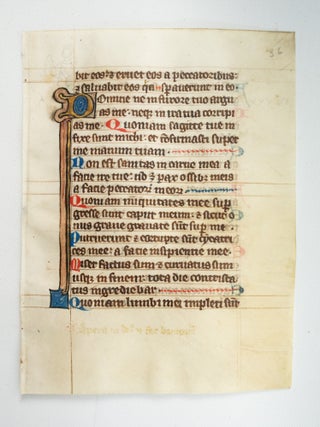 36
bit eos: et eruet eos a peccatoribus:
et saluabit eos quia sperauerunt in eo.
Domine ne in furore tuo argu
as me: neque in ira tua corripi
as me. Quoniam sagitte tue in
fixe sunt michi: et confirmasti super
me manum tuam.
Non est sanitas in carne mea a
facie ire tue: non est pax ossibus meis
a facie peccatorum meorum.
Quoniam iniquitates mee super
gresse sunt caput meum: et sicut o
nus graue grauate sunt super me.
Putruerunt et corrupte sunt cycatri
ces mee: a facie insipientie mee.
Miser factus sum et curuatus sum
usque in finem: tota die contrista
tus ingrediebar.
Quoniam lumbi mei impleti sunt